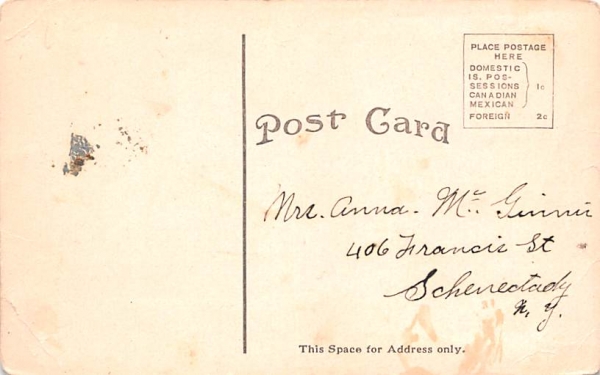 PLACE POSTAGE
HERE
DOMESTIC
IS. POS-
SESSIONS
CANADIAN
MEXICAN
1c
FOREIGN 2c
Post Card
Mrs. Anna. Mc Ginnis
406 Francis St
Schenectady
N. Y.
This Space for Address only.